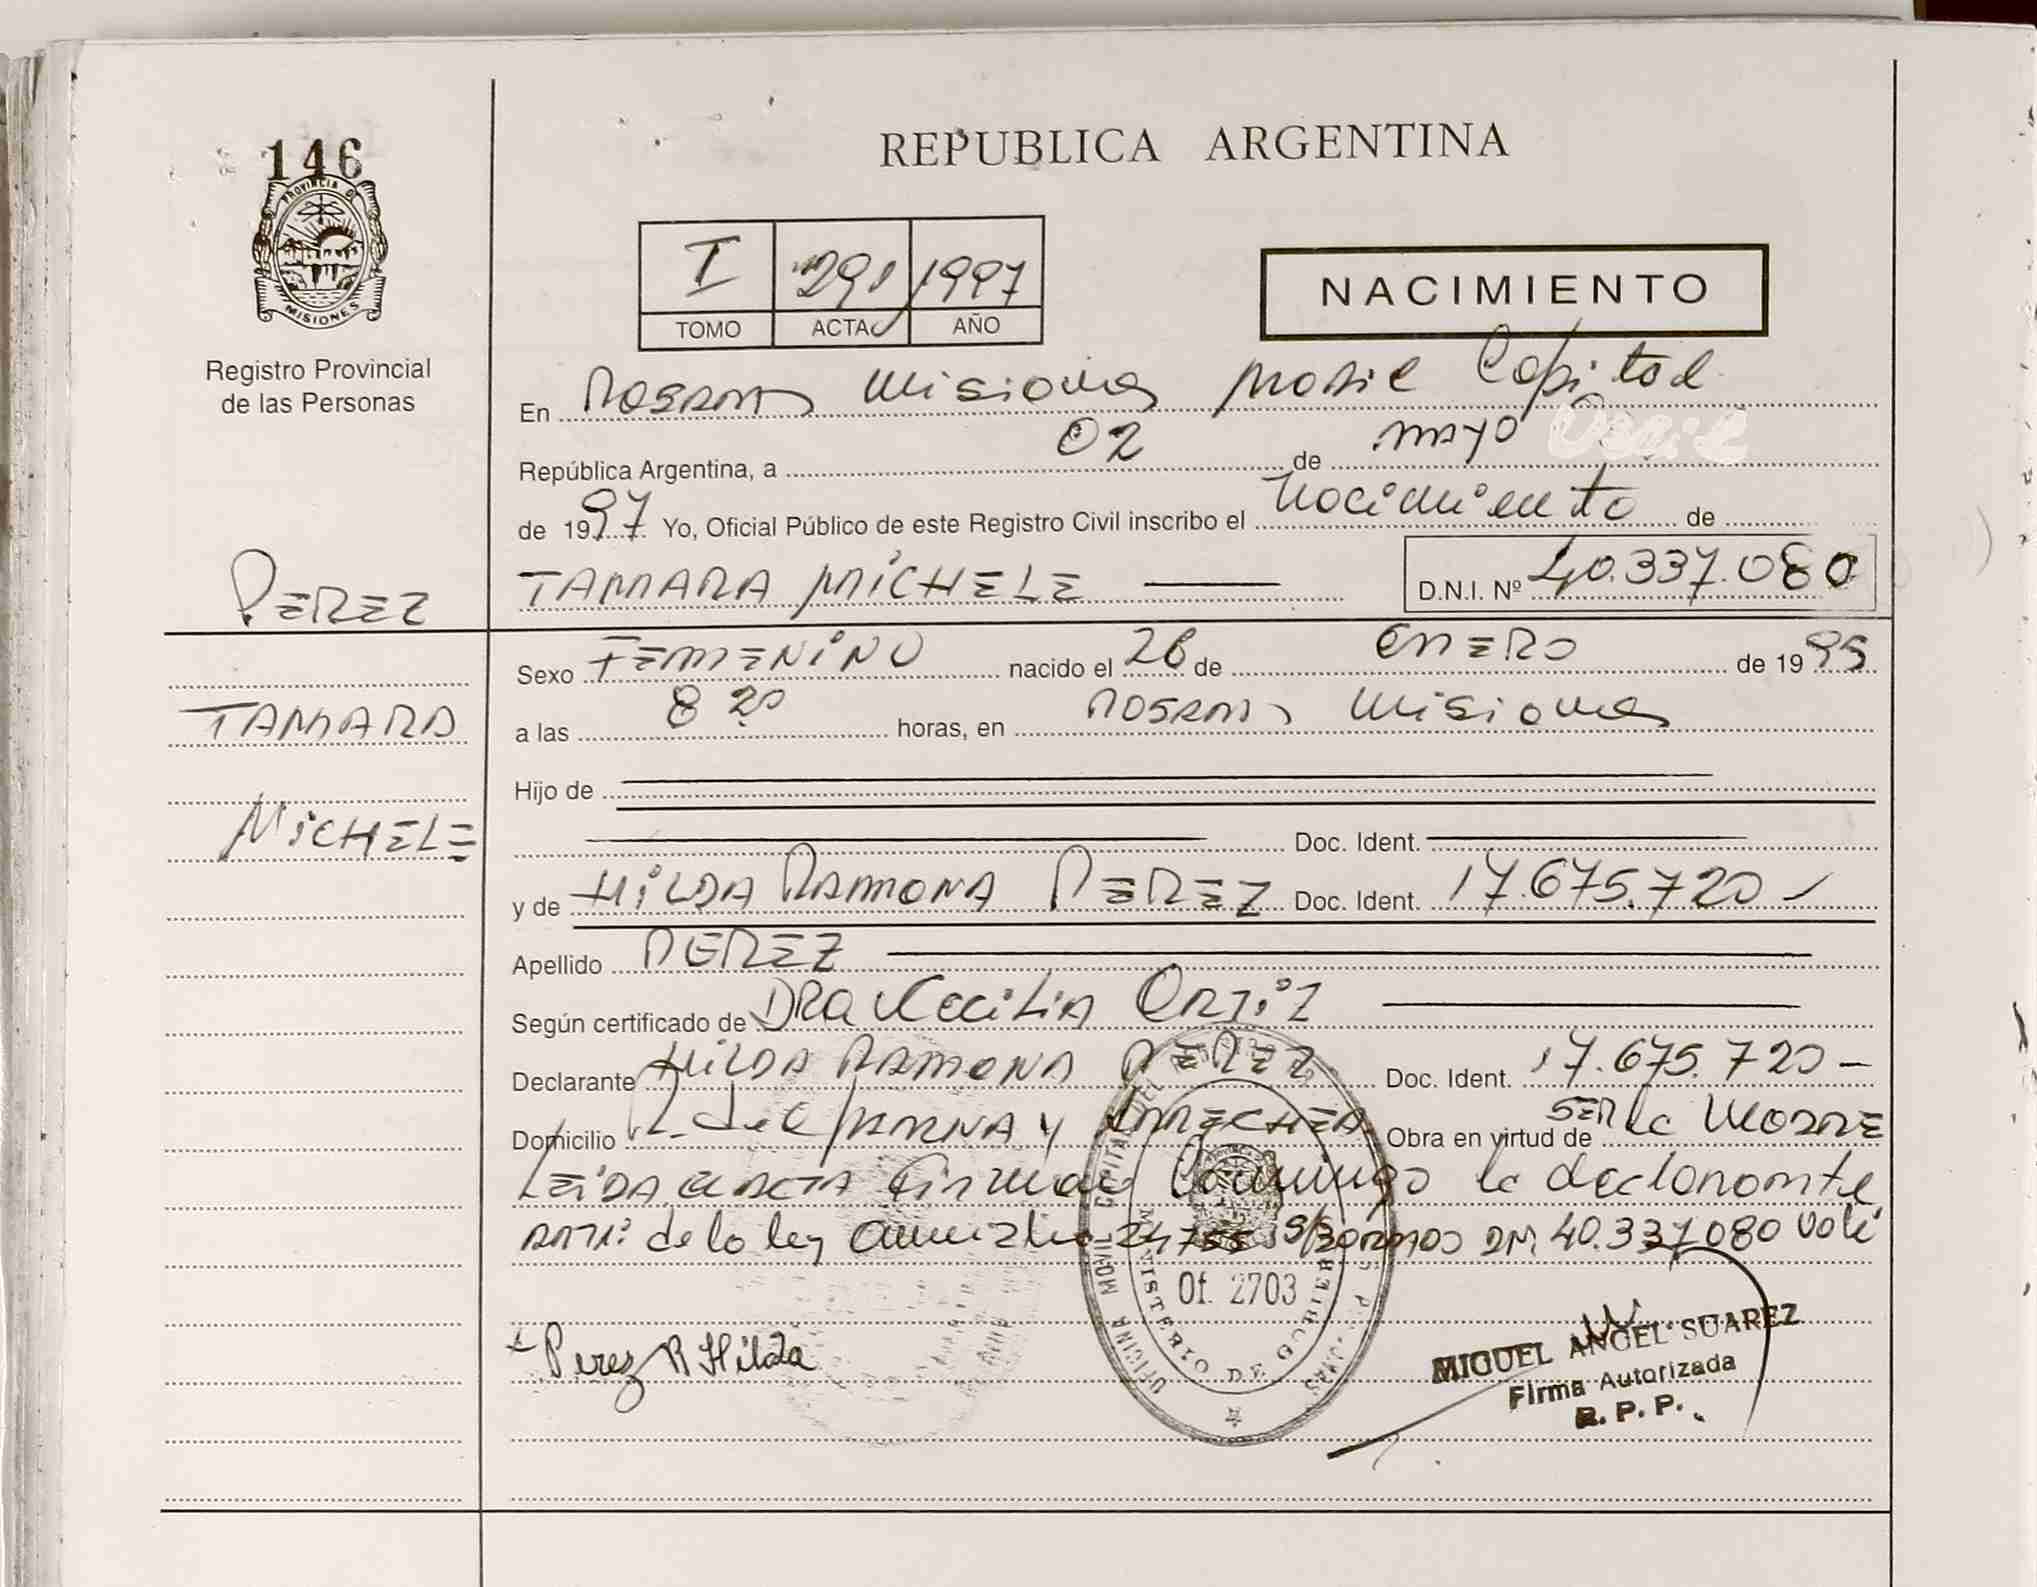 146
PROVINCIA DE
MISIONES
Registro Provincial
de las Personas
PEREZ
TAMARA
MICHELE
REPUBLICA ARGENTINA
I 291 1997
TOMO ACTA AÑO
NACIMIENTO
En Posadas Misiones Movil Capital
República Argentina, a 02 de mayo
de 1997 Yo, Oficial Público de este Registro Civil inscribo el nacimiento de
TAMARA MICHELE D.N.I. Nº 40.337.080
Sexo FEMENINO nacido el 26 de ENERO de 1995
a las 8 20 horas, en Posadas Misiones
Hijo de
Doc. Ident.
y de HILDA RAMONA PEREZ Doc. Ident. 17.675.720
Apellido PEREZ
Según certificado de DRA Cecilia Ortiz
Declarante HILDA RAMONA PEREZ Doc. Ident. 17.675.720
Domicilio y Obra en virtud de SER la MADRE
LEIDA EL ACTA Firman Conmigo la declarante
de la ley 24755 S/Borrado DNI 40.337.080 Vale
OFICINA MOVIL CAPITAL DEL
MINISTERIO DE GOBIERNO
Of. 2703
Perez R Hilda
MIGUEL ANGEL SUAREZ
Firma Autorizada
R. P. P.